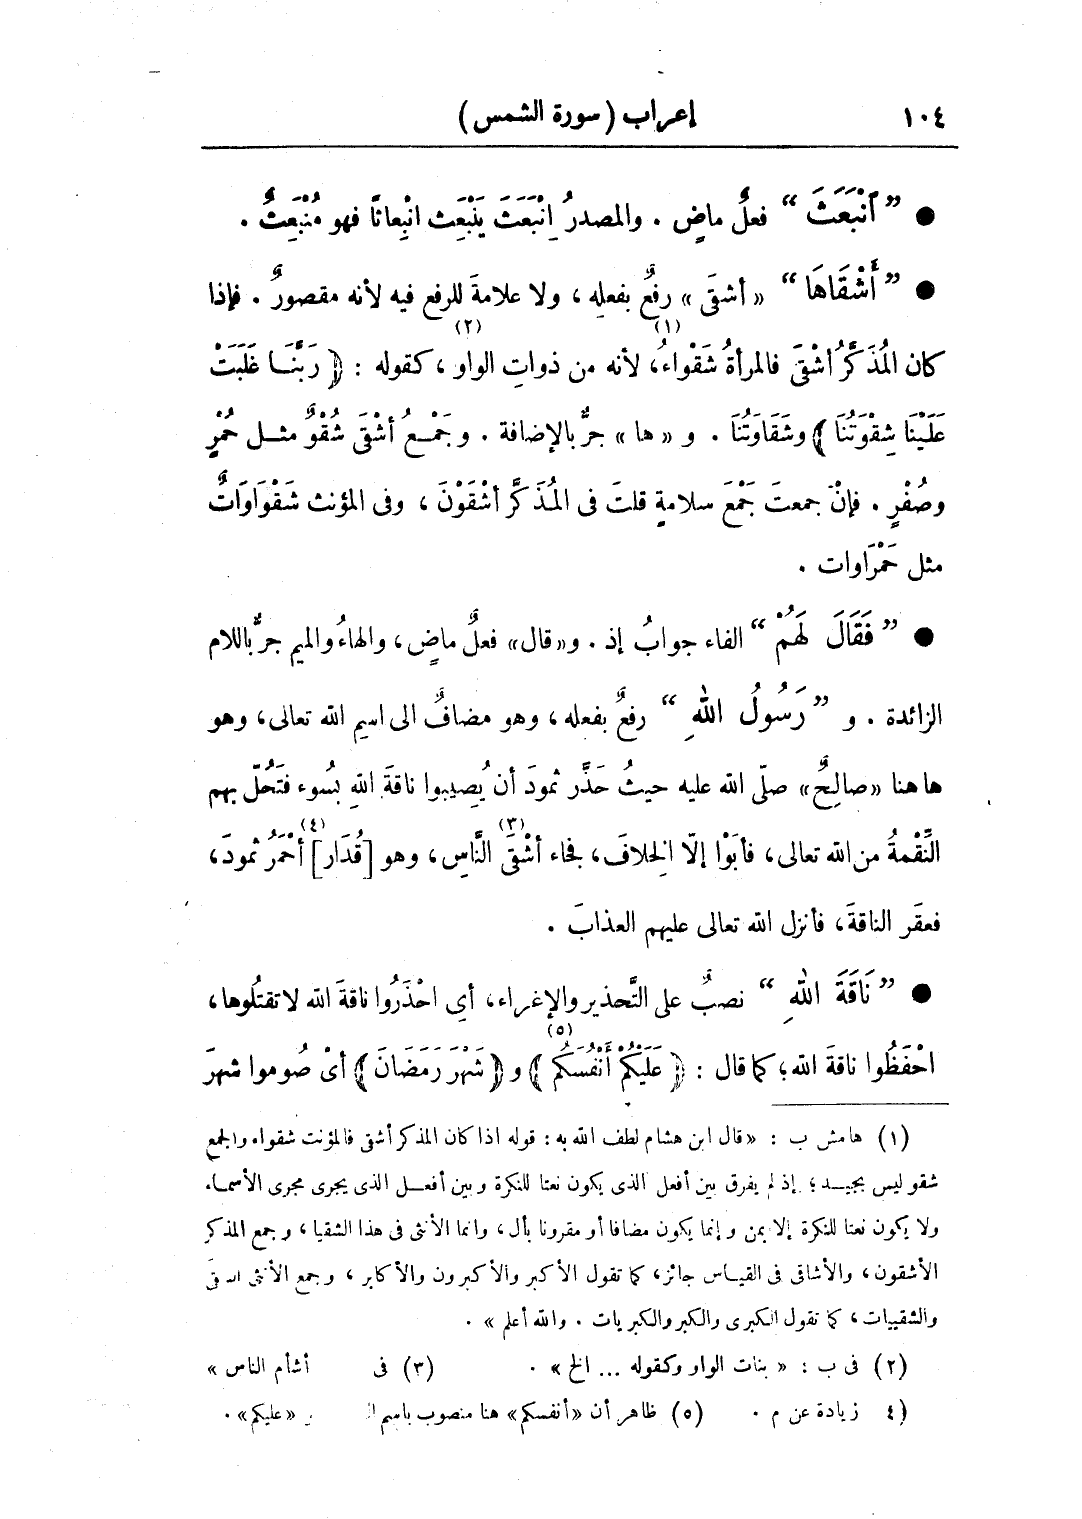 ١٠٤ إعراب (سورة الشمس)
● ” اَنْبَعَثَ “ فعلٌ ماضٍ . والمصدرُ اِنْبَعَثَ يَنْبَعِثُ انْبِعاثًا فهو مُنْبَعِثٌ .
● ” أَشْقَاهَا “ «أشقَى» رفعٌ بفعلِه ، ولا علامةَ للرفع فيه لأنه مقصورٌ . فإذا
كان المُذَكَّرُ أشْقَى فالمرأةُ شَقْواءُ(١)، لأنه من ذواتِ الواوِ(٢) ، كقوله : ﴿ رَبَّنَـا غَلَبَتْ
عَلَيْنَا شِقْوَتُنَا ﴾ وشَقَاوَتُنَا . و «ها» جرٌّ بالإضافة . وجَمْـعُ أشْقَى شُقْوٌ مثـل حُمْرٍ
وصُفْرٍ . فإنْ جمعتَ جَمْعَ سلامةٍ قلتَ فى المُذَكَّرِ أشْقَوْنَ ، وفى المؤنث شَقْوَاوَاتٌ
مثل حَمْرَاوات .
● ” فَقَالَ لَهُمْ “ الفاء جوابُ إذ . و«قال» فعلٌ ماضٍ، والهاءُ والميم جرٌّ باللام
الزائدة . و ” رَسُولُ اللهِ “ رفعٌ بفعله ، وهو مضافٌ الى اسمِ الله تعالى، وهو
ها هنا «صالِحٌ» صلّى الله عليه حيثُ حَذَّر ثمودَ أن يُصِيبوا ناقةَ اللهِ بسُوء فتَحُلّ بهم
النِّقْمةُ من الله تعالى، فأبَوْا إلّا الخِلافَ، فجاء أشْقَى النَّاسِ(٣)، وهو [قُدَار](٤) أحْمَرُ ثمودَ،
فعقَر الناقةَ، فأنزل الله تعالى عليهم العذابَ .
● ” نَاقَةَ اللهِ “ نصبٌ على التَّحذير والإغراء، أي احْذَرُوا ناقةَ الله لا تقتُلوها،
احْفَظُوا ناقةَ الله؛ كما قال : ﴿ عَلَيْكُمْ أَنْفُسَكُمْ(٥) ﴾ و ﴿ شَهْرَ رَمَضَانَ ﴾ أىْ صُوموا شهرَ
(١) هامش ب : «قال ابن هشام لطف الله به : قوله اذا كان المذكر أشقى فالمؤنث شقواء والجمع
شقو ليس بجيـد؛ إذ لم يفرق بين أفعل الذى يكون نعتا للنكرة وبين أفعـل الذى يجرى مجرى الأسماء
ولا يكون نعتا للنكرة إلا بمن وإنما يكون مضافا أو مقرونا بأل، وانما الأنثى فى هذا الشقيا، وجمع المذكر
الأشقون، والأشاقى فى القيـاس جائز، كما تقول الأكبر والأكبرون والأكابر ، وجمع الأنثى
والشقييات، كما تقول الكبرى والكبر والكبريات . والله أعلم » .
(٢) فى ب : « بنات الواو وكقوله ... الخ » . (٣) فى أشأم الناس »
(٤ زيادة عن م . (٥) ظاهر أن «أنفسكم» هنا منصوب باسم «عليكم» .